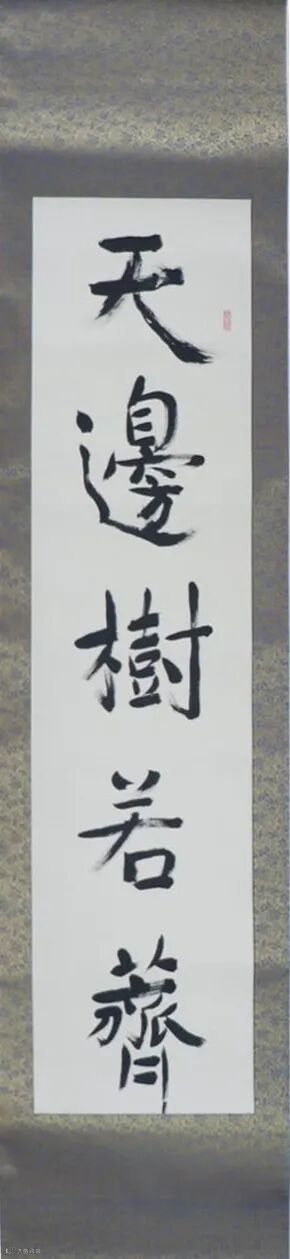 天邊樹若薺